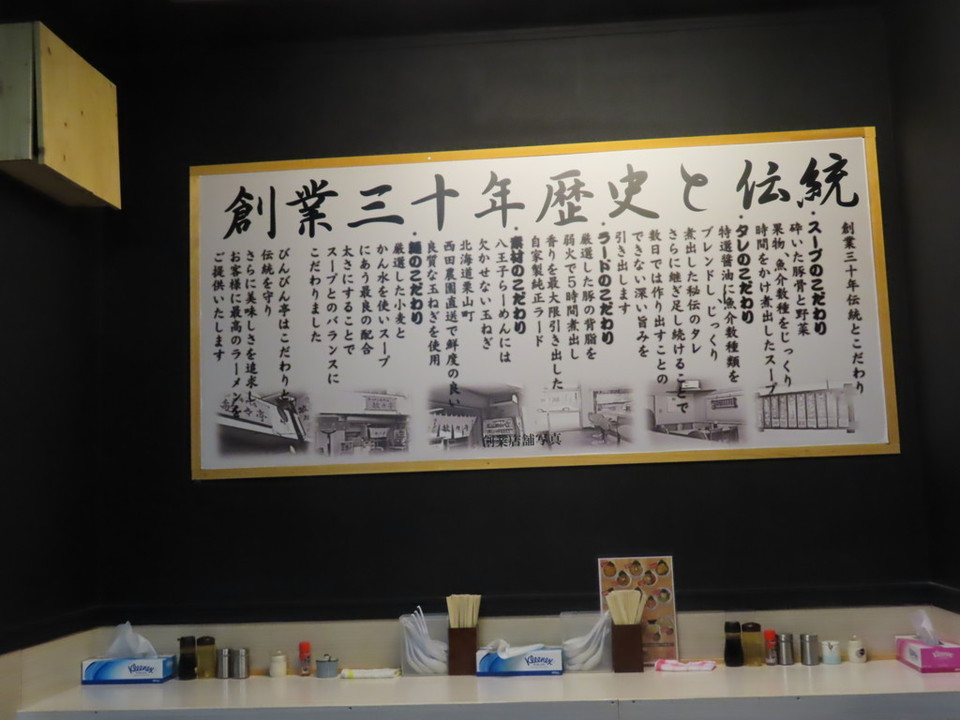 創業三十年歴史と伝統
創業三十年伝統とこだわり
・スープのこだわり
砕いた豚骨と野菜
果物、魚介数種をじっくり
時間をかけ煮出したスープ
・タレのこだわり
特選醤油に魚介数種類を
ブレンドし じっくり
煮出した秘伝のタレ
さらに継ぎ足し続けることで
数日では作り出すことの
できない深い旨みを
引き出します
・ラードのこだわり
厳選した豚の背脂を
弱火で5時間煮出し
香りを最大限引き出した
自家製純正ラード
・素材のこだわり
八王子らーめんには
欠かせない玉ねぎ
北海道栗山町
西田農園直送で鮮度の良い
良質な玉ねぎを使用
・麺のこだわり
厳選した小麦と
かん水を使いスープ
にあう最良の配合
太さにすることで
スープとのバランスに
こだわりました
びんびん亭はこだわりと
伝統を守り
さらに美味しさを追求し
お客様に最高のラーメンを
ご提供いたします
創業店舗写真
Kleenex
Kleenex